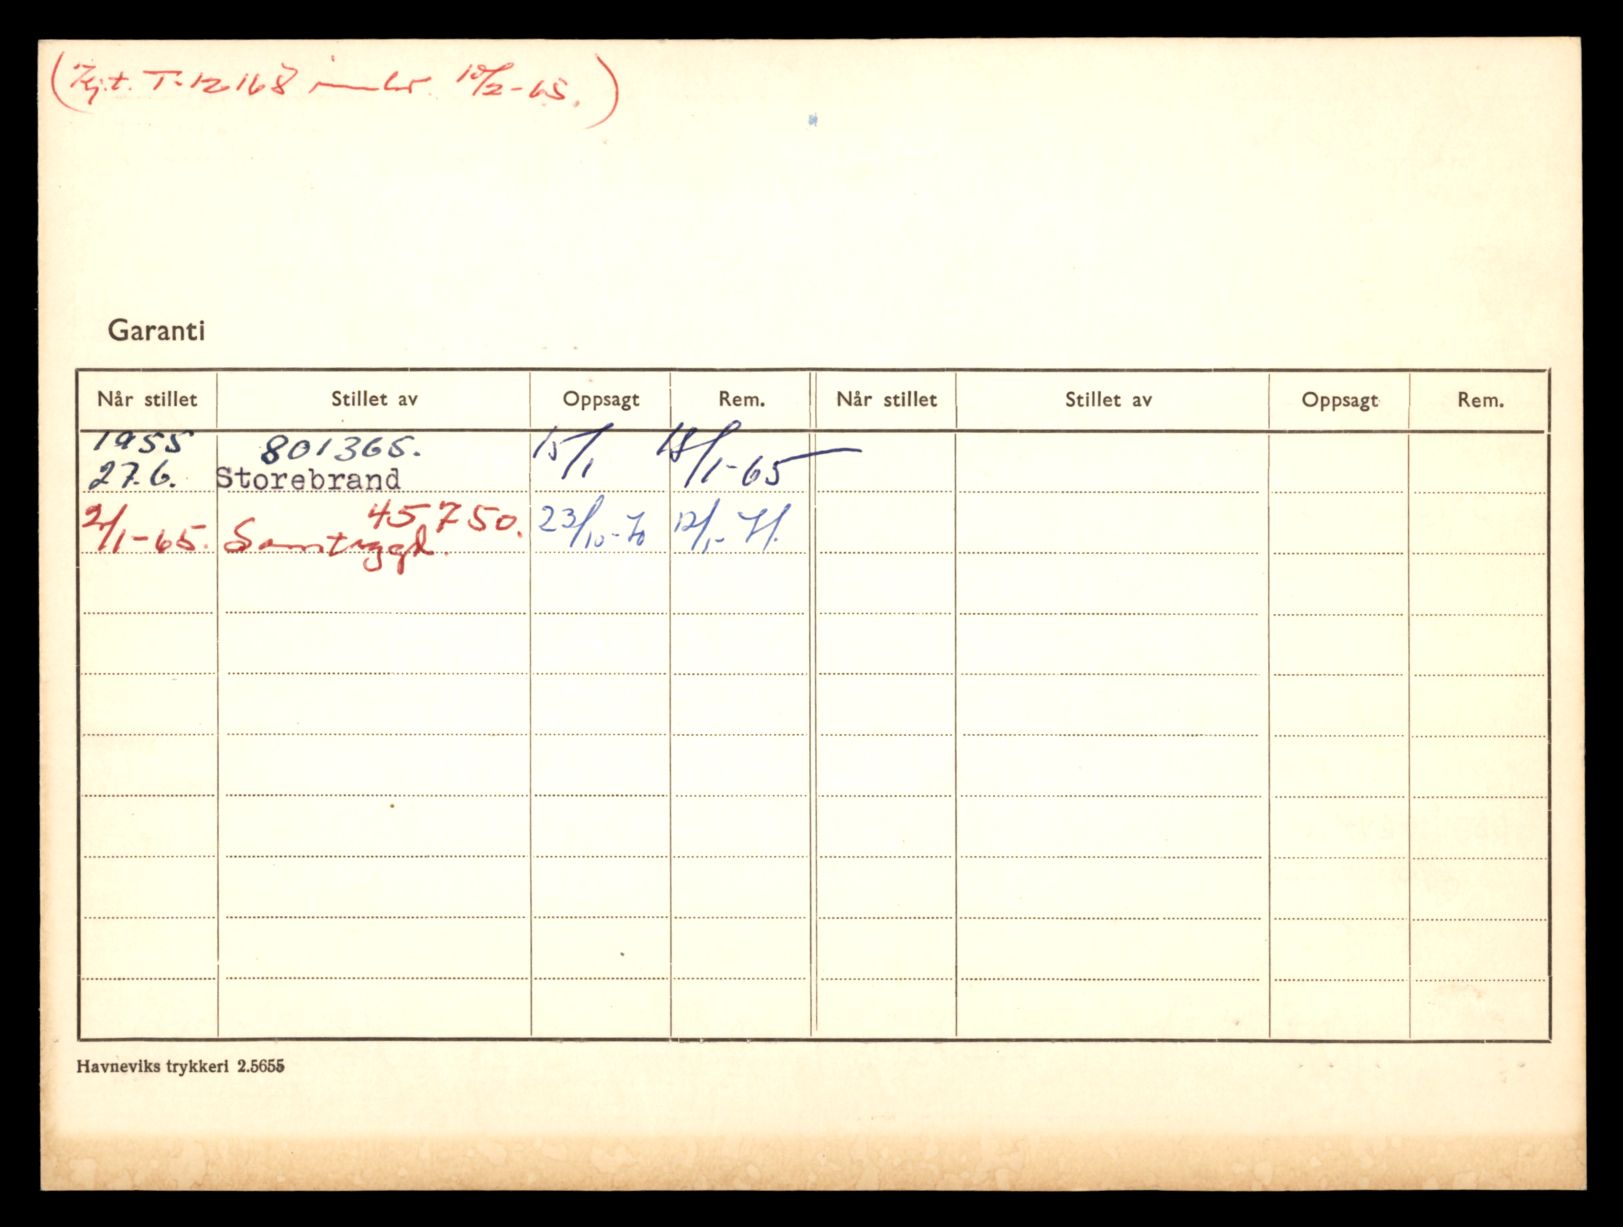 (Kjt. T-12168 innlev. 10/2-65.)
Garanti
Når stillet Stillet av Oppsagt Rem. Når stillet Stillet av Oppsagt Rem.
1955 801365. 15/1 18/1-65
27.6. Storebrand
2/1-65. 45750. 23/10-70 12/1-71.
Samtrygd.
Havneviks trykkeri 2.5655